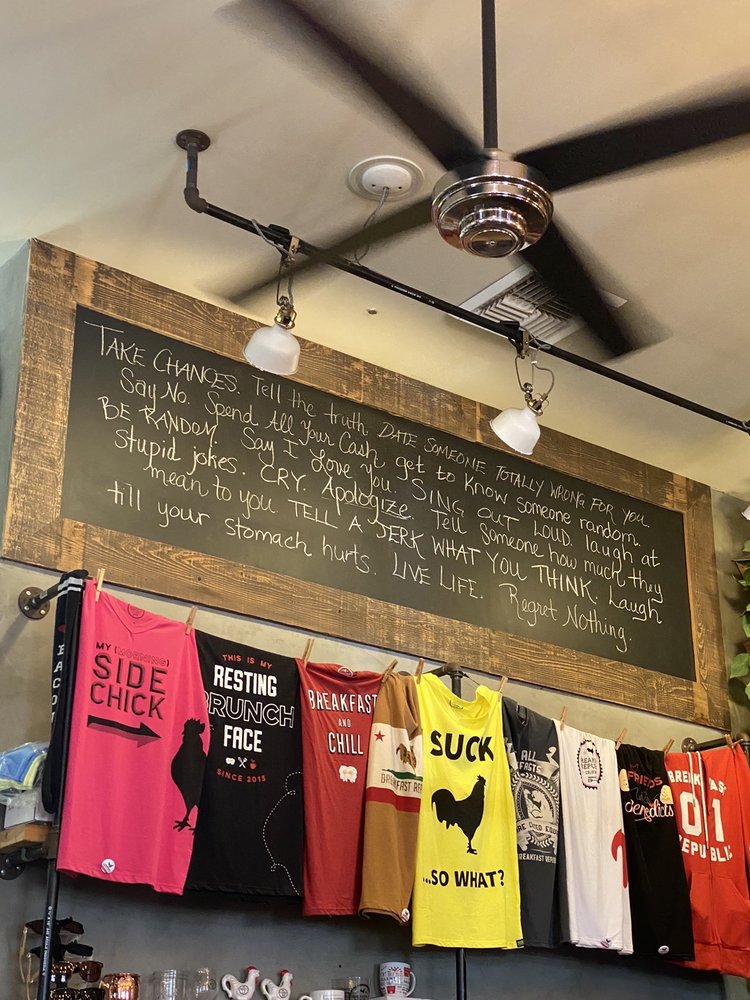 TAKE CHANCES. Tell the truth DATE SOMEONE TOTALLY WRONG FOR YOU
Say No. Spend All Your Cash get to know someone random.
BE RANDOM. Say I Love You. SING OUT LOUD. laugh at
stupid jokes. CRY. Apologize. Tell someone how much they
mean to you TELL A JERK WHAT YOU THINK. Laugh
till your stomach hurts. LIVE LIFE. Regret Nothing.
BACON
MY (MORNING)
SIDE
CHICK
THIS IS MY
RESTING
BRUNCH
FACE
SINCE 2015
BREAKFAST
AND
CHILL
SUCK
...SO WHAT?
ALL
BREAKFAST REPU
FRIENDS
benedicts
BREAKFAST
01
REPUBLIC